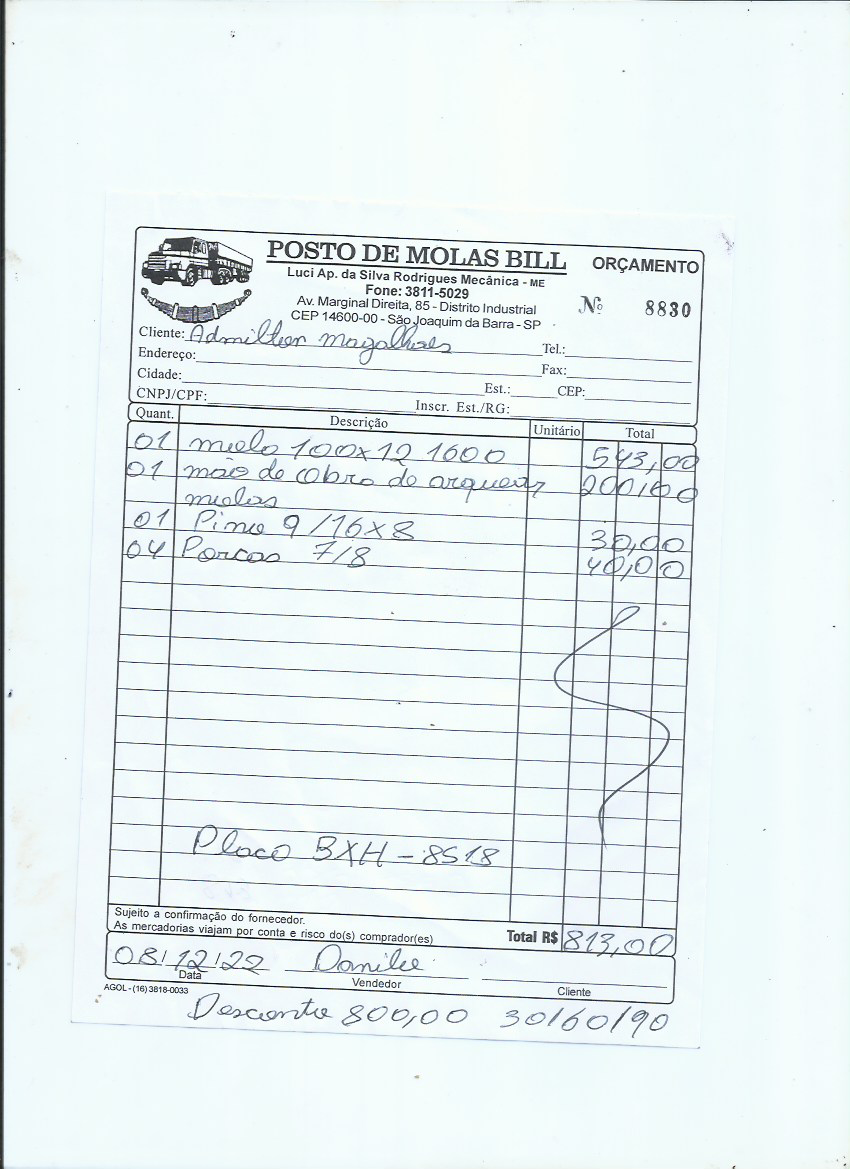 POSTO DE MOLAS BILL
ORÇAMENTO
Luci Ap. da Silva Rodrigues Mecânica - ME
Fone: 3811-5029
Av. Marginal Direita, 85 - Distrito Industrial
CEP 14600-00 - São Joaquim da Barra - SP
Nº 8830
Cliente: Admilton Magalhaes Tel.:
Endereço: Fax:
Cidade: Est.: CEP:
CNPJ/CPF: Inscr. Est./RG:
Quant. Descrição Unitário Total
01 mola 100x12 1600 543,00
01 mão de obra de arquear 200,00
molas
01 Pino 9/16x8 30,00
04 Porcas 7/8 40,00
Placa BXH - 8518
Sujeito a confirmação do fornecedor.
As mercadorias viajam por conta e risco do(s) comprador(es)
Total R$ 813,00
08/12/22 Danilo
Data Vendedor Cliente
AGOL - (16) 3818-0033
Desconto 800,00 30/60/90